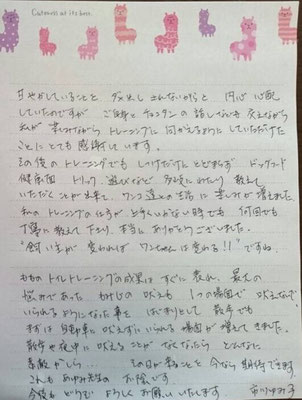 Cuteness at its best.
甘やかしていることと ダメ出しされないかと 内心 心配
していたのですが ご自身と チョコタンの 話しなども 交えながら
私が 楽しみながら トレーニングに 向かえるようにしていただけた
ことに とても 感謝して います。
その後の トレーニングでも しつけだけに とどまらず ドッグフード
健康面 トリック 遊びなど 多岐にわたり 教えて
いただくことが出来て、ワンコ達との生活に 楽しみが増えました。
私の トレーニングの仕方が 上手くいかない時でも 何回でも
丁寧に 教えて下さり、本当に ありがとうございました。
"飼い主が 変われば ワンちゃんは変わる!!" ですね。
ももの トイレトレーニングの成果は すぐに 表れ、最大の
悩みであった 吠えも 1つの場面で 吠えないで
いられるようになった事を はじまりとして 散歩でも
まずは 自転車に 吠えずに いられる 場面が 増えてきました。
散歩や夜中に 吠えることが なくなったら どんなに
素敵かしら… その日が来ることを 今なら 期待できます。
これも あゆみ先生の お陰です。
今後も どうぞ よろしくお願いいたします。